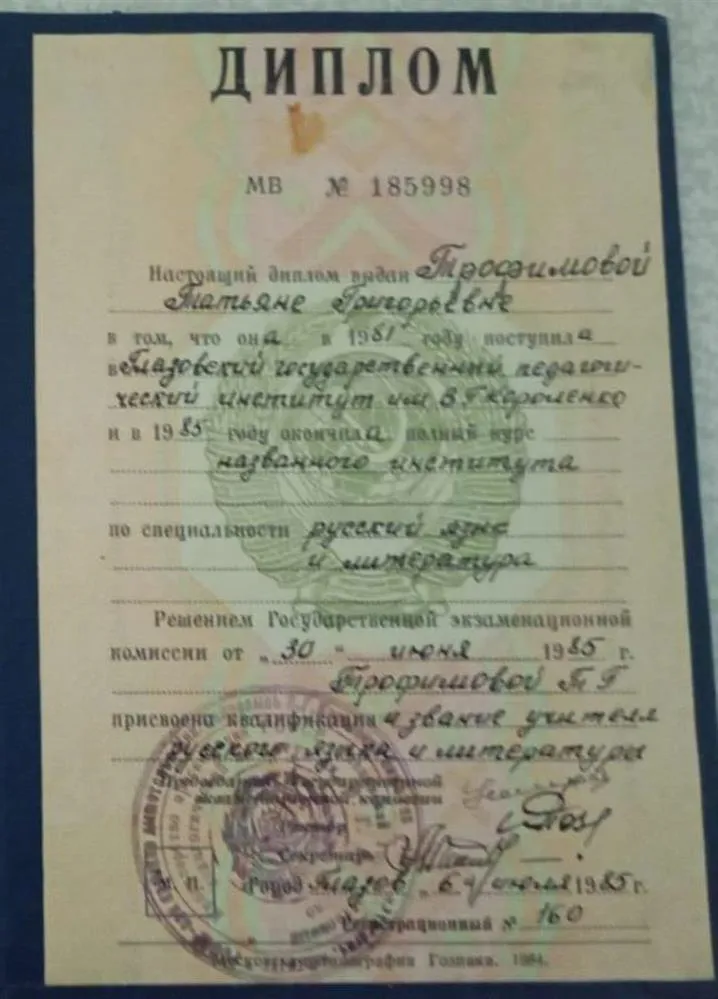 ДИПЛОМ
МВ № 185998
Настоящий диплом выдан Трофимовой
Татьяне Григорьевне
в том, что она в 1981 году поступила
в Глазовский государственный педагоги-
ческий институт им В Г Короленко
и в 1985 году окончила полный курс
названного института
по специальности русский язык
и литература
Решением Государственной экзаменационной
комиссии от „30“ июня 1985 г.
Трофимовой Т Г
присвоена квалификация и звание учителя
русского языка и литературы
Председатель Государственной
экзаменационной комиссии
Ректор
Секретарь
М. П.
Город Глазов „6“ июля 1985 г.
Регистрационный № 160
Московская типография Гознака. 1984.